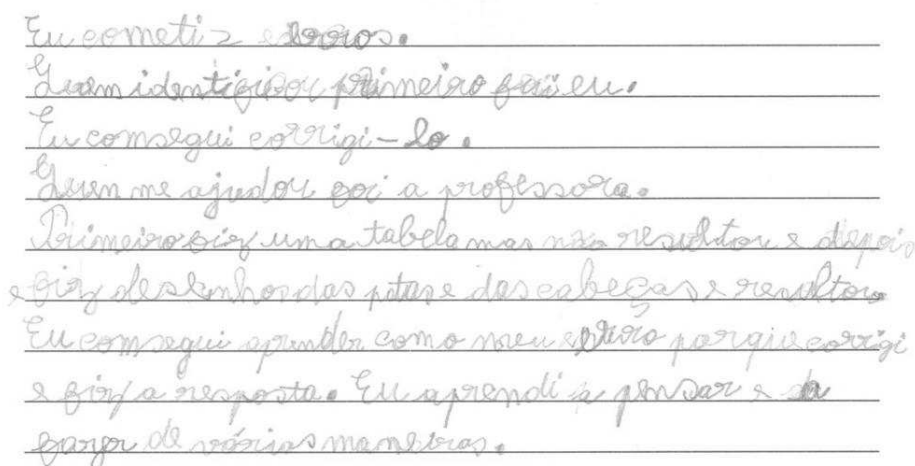 Eu cometi 2 erros.
Quem identificou primeiro foi eu.
Eu comsegui corrigi-lo.
Quem me ajudou foi a professora.
Primeiro fiz uma tabela mas não resultou e depois
e fiz desenhos das patas e das cabeças e resultou.
Eu comsegui aprender com o meu erro porque corrigi
e fiz a resposta. Eu aprendi a pensar e a
fazer de várias maneiras.